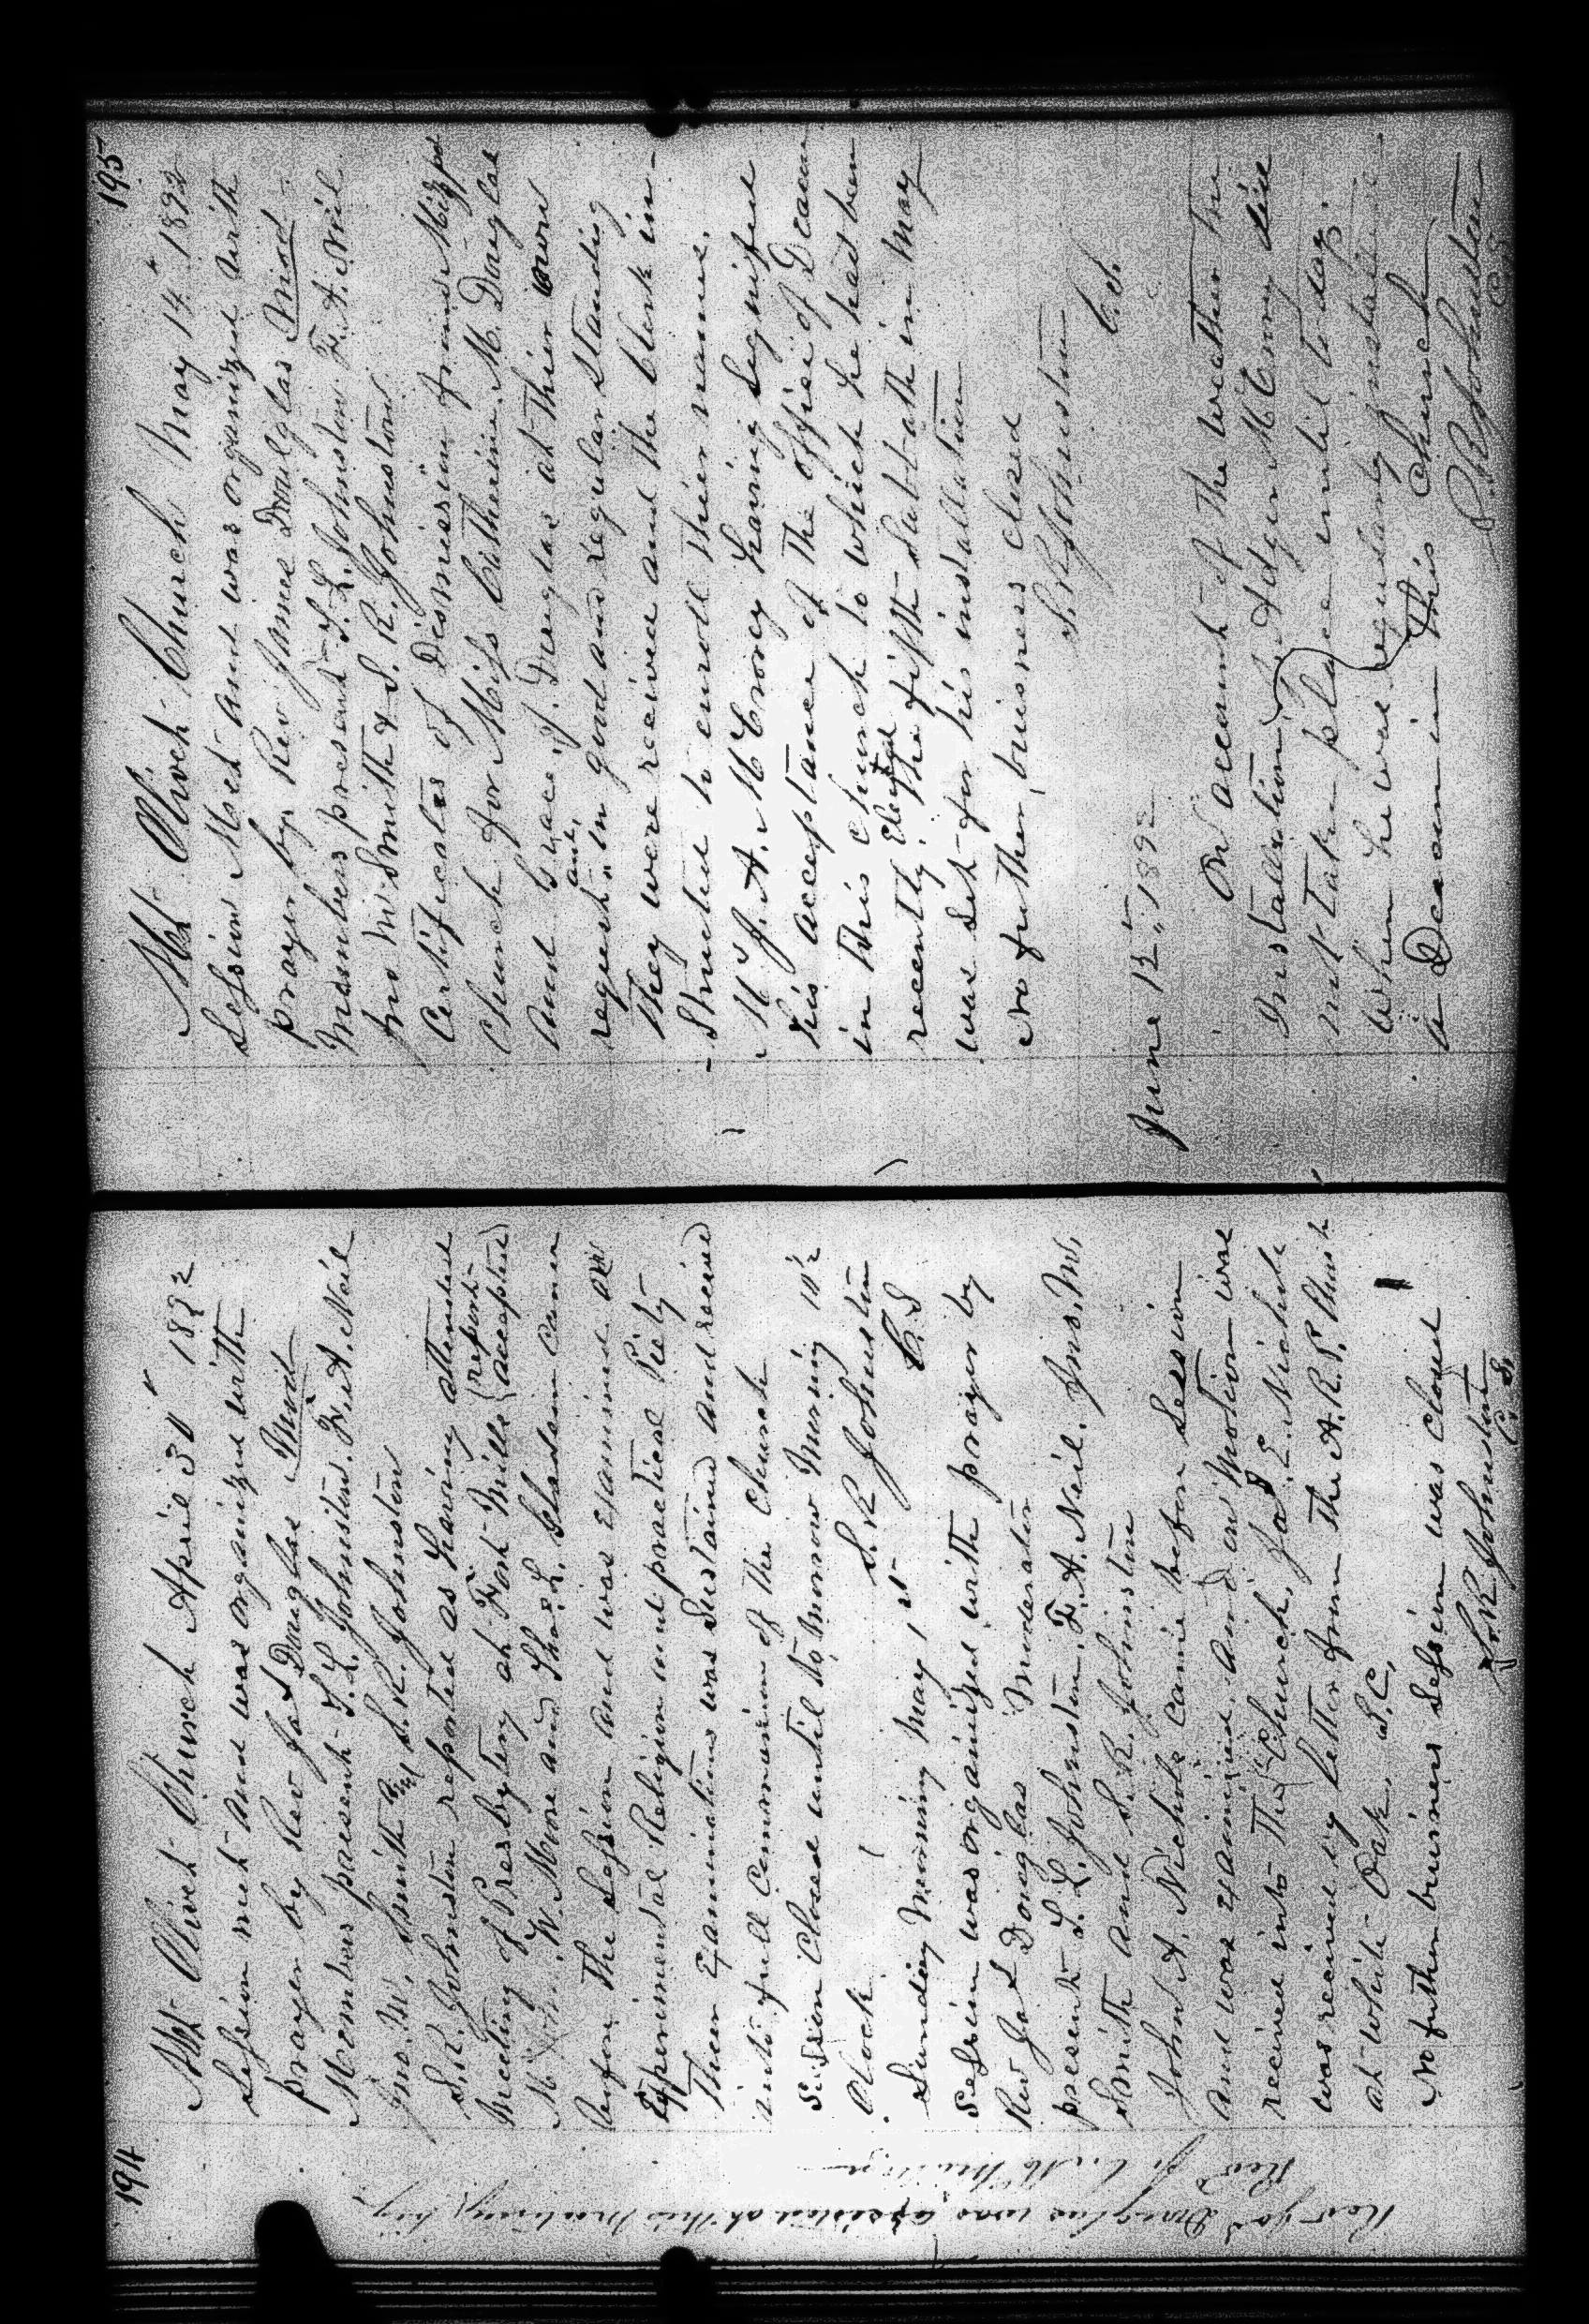 194
Mt Olivet Church April 30" 1892
Session met and was organized with
prayer by Rev Jas Douglas Mod
Members present T. L. Johnston. F. A. Neil
Jno. W. Smith & S. R. Johnston
S. R. Johnston reported as having attended
meeting of Presbytery at Fort Mills (report accepted)
M W. Moore and Thos. L. Gladden came
before the Session and was examined on
Experimental Religion and practical Piety
Their Examinations was Sustained and received
into full Communion of the Church
Session Closed until to Morrow Morning 10 1/2
Oclock
S. R Johnston
C. S
Sunday Morning May 1st
Session was organized with prayer by
Rev Jas Douglas Moderator
present T. L. Johnston, F. A. Neil. Jno. W.
Smith and S. R. Johnston
John A. Nichols came before Session
and was examined and on Motion was
received into the Church, Jas. E. Nichols
was received by letter from the A. R. P. Church
at White Oak, S. C.
No further business Session was Closed
S. R Johnston
C. S.
Rev Jas Douglas was assisted at this meeting by
Rev
195
Mt Olivet Church May 14" 1892
Session Met and was organized with
prayer by Rev James Douglas Mod
Members present T. L. Johnston F. A. Neil
Jno W Smith & S. R. Johnston
Certificates of Dismission from
Church for Miss Catherine M. Douglas
and Grace J. Douglas at thier own
request and in good and regular standing
They were received and the Clerk in-
-structed to enroll thier names.
Mr J. A. McCrorey having signified
his acceptance of the office of Deacon
in this church to which he had been
recently Elected The fifth Sabbath in May
was set for his installation
No further buisness closed
S. R Johnston
C. S.
June 12", 1892
On account of the weather the
Installation J. Adger McCrorey did
not take place until to day.
When he was regularly installed
a Deacon in this Church
S. R Johnston
C. S